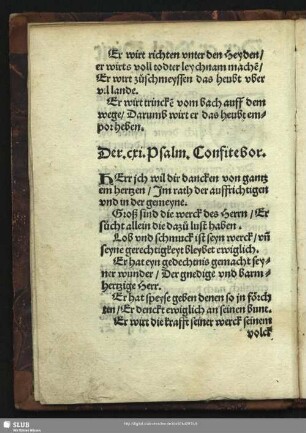 Er wirt richten vnter den Heyden/
er wirts voll todter leychnam machē/
Er wirt zůschmeyssen das heubt vber
vil lande.
Er wirt trinckē vom bach auff dem
wege/ Darumb wirt er das heubt em-
por heben.
Der .cxi. Psalm. Confitebor.
HErr ich wil dir dancken von gantz
em hertzen/ Im rath der auffrichtigen
vnd in der gemeyne.
Groß sind die werck des Herrn/ Er
sücht allein die dazů lust haben.
Lob vnd schmuck ist seyn werck/ vñ
seyne gerechtigkeyt bleybet ewiglich.
Er hat eyn gedechtnis gemacht sey-
ner wunder/ Der gnedige vnd barm-
hertzige Herr.
Er hat speyse geben denen so in förch
ten/ Er denckt ewiglich an seinen bunt.
Er wirt die krafft seiner werck seinem
volck
SLUB
Wir führen Wissen.